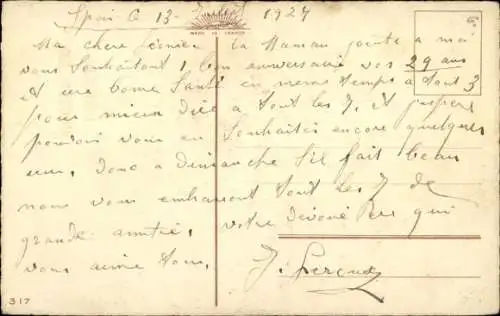 Spa le 13 1927
MADE IN FRANCE
Ma chere la Maman jointe a moi
vous Souhaitont 1 bon anniversaire vos 29 ans
et une bonne Santé en meme temps a tout 3
pour mieux dire a tout les 7, et j'espere
pouvoir vous en Souhaiter encore quelques
une, donc a dimanche Sil fait beau
nous vous embrasont tout les 7 de
grande amitié, votre devoué Pere qui
vous aime tous,
J.
317